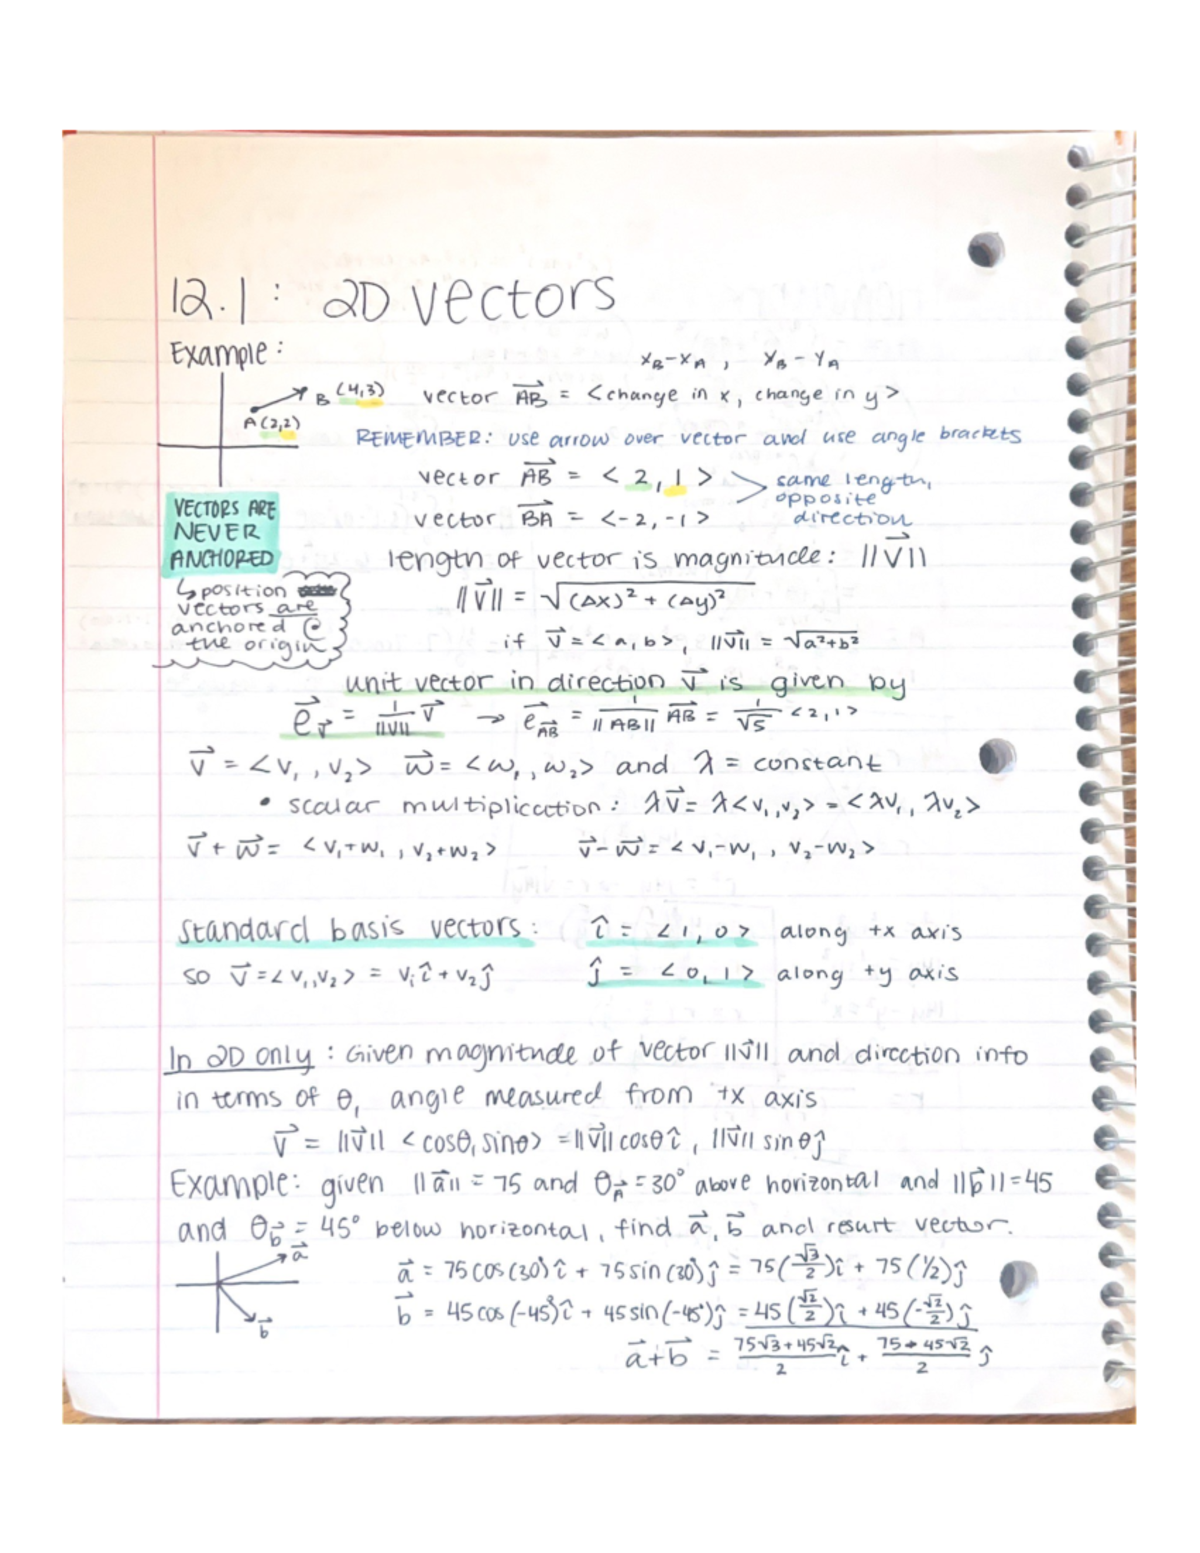 12.1 : 2D vectors
Example :
x_B - x_A , x_B - y_A
B (4,3)
A (2,2)
vector AB⃗ = < change in x, change in y >
REMEMBER: use arrow over vector and use angle brackets
vector AB⃗ = < 2, 1 >
vector BA⃗ = < -2, -1 >
same length,
opposite
direction
VECTORS ARE
NEVER
ANCHORED
↳ position
vectors are
anchored @
the origin
length of vector is magnitude : ||v⃗||
||v⃗|| = √((Δx)² + (Δy)²)
if v⃗ = < a, b >, ||v⃗|| = √(a²+b²)
unit vector in direction v⃗ is given by
e⃗_v⃗ = 1/||v⃗|| v⃗ → e⃗_AB⃗ = 1/||AB|| AB⃗ = 1/√5 < 2, 1 >
v⃗ = < v₁ , v₂ > w⃗ = < w₁ , w₂ > and λ = constant
• scalar multiplication : λv⃗ = λ< v₁, v₂ > = < λv₁, λv₂ >
v⃗ + w⃗ = < v₁+w₁ , v₂+w₂ > v⃗ - w⃗ = < v₁-w₁ , v₂-w₂ >
Standard basis vectors : î = < 1, 0 > along +x axis
so v⃗ = < v₁, v₂ > = v₁î + v₂ĵ ĵ = < 0, 1 > along +y axis
In 2D only : Given magnitude of vector ||v⃗|| and direction info
in terms of θ, angle measured from +x axis
v⃗ = ||v⃗|| < cosθ, sinθ > = ||v⃗|| cosθ î , ||v⃗|| sinθ ĵ
Example: given ||a⃗|| = 75 and θ_A⃗ = 30° above horizontal and ||b⃗|| = 45
and θ_b⃗ = 45° below horizontal, find a⃗, b⃗ and resurt vector.
a⃗
b⃗
a⃗ = 75 cos (30°) î + 75 sin (30°) ĵ = 75(√3/2) î + 75 (1/2) ĵ
b⃗ = 45 cos (-45°) î + 45 sin (-45°) ĵ = 45 (√2/2) î + 45 (-√2/2) ĵ
a⃗ + b⃗ = (75√3 + 45√2)/2 î + (75 - 45√2)/2 ĵ